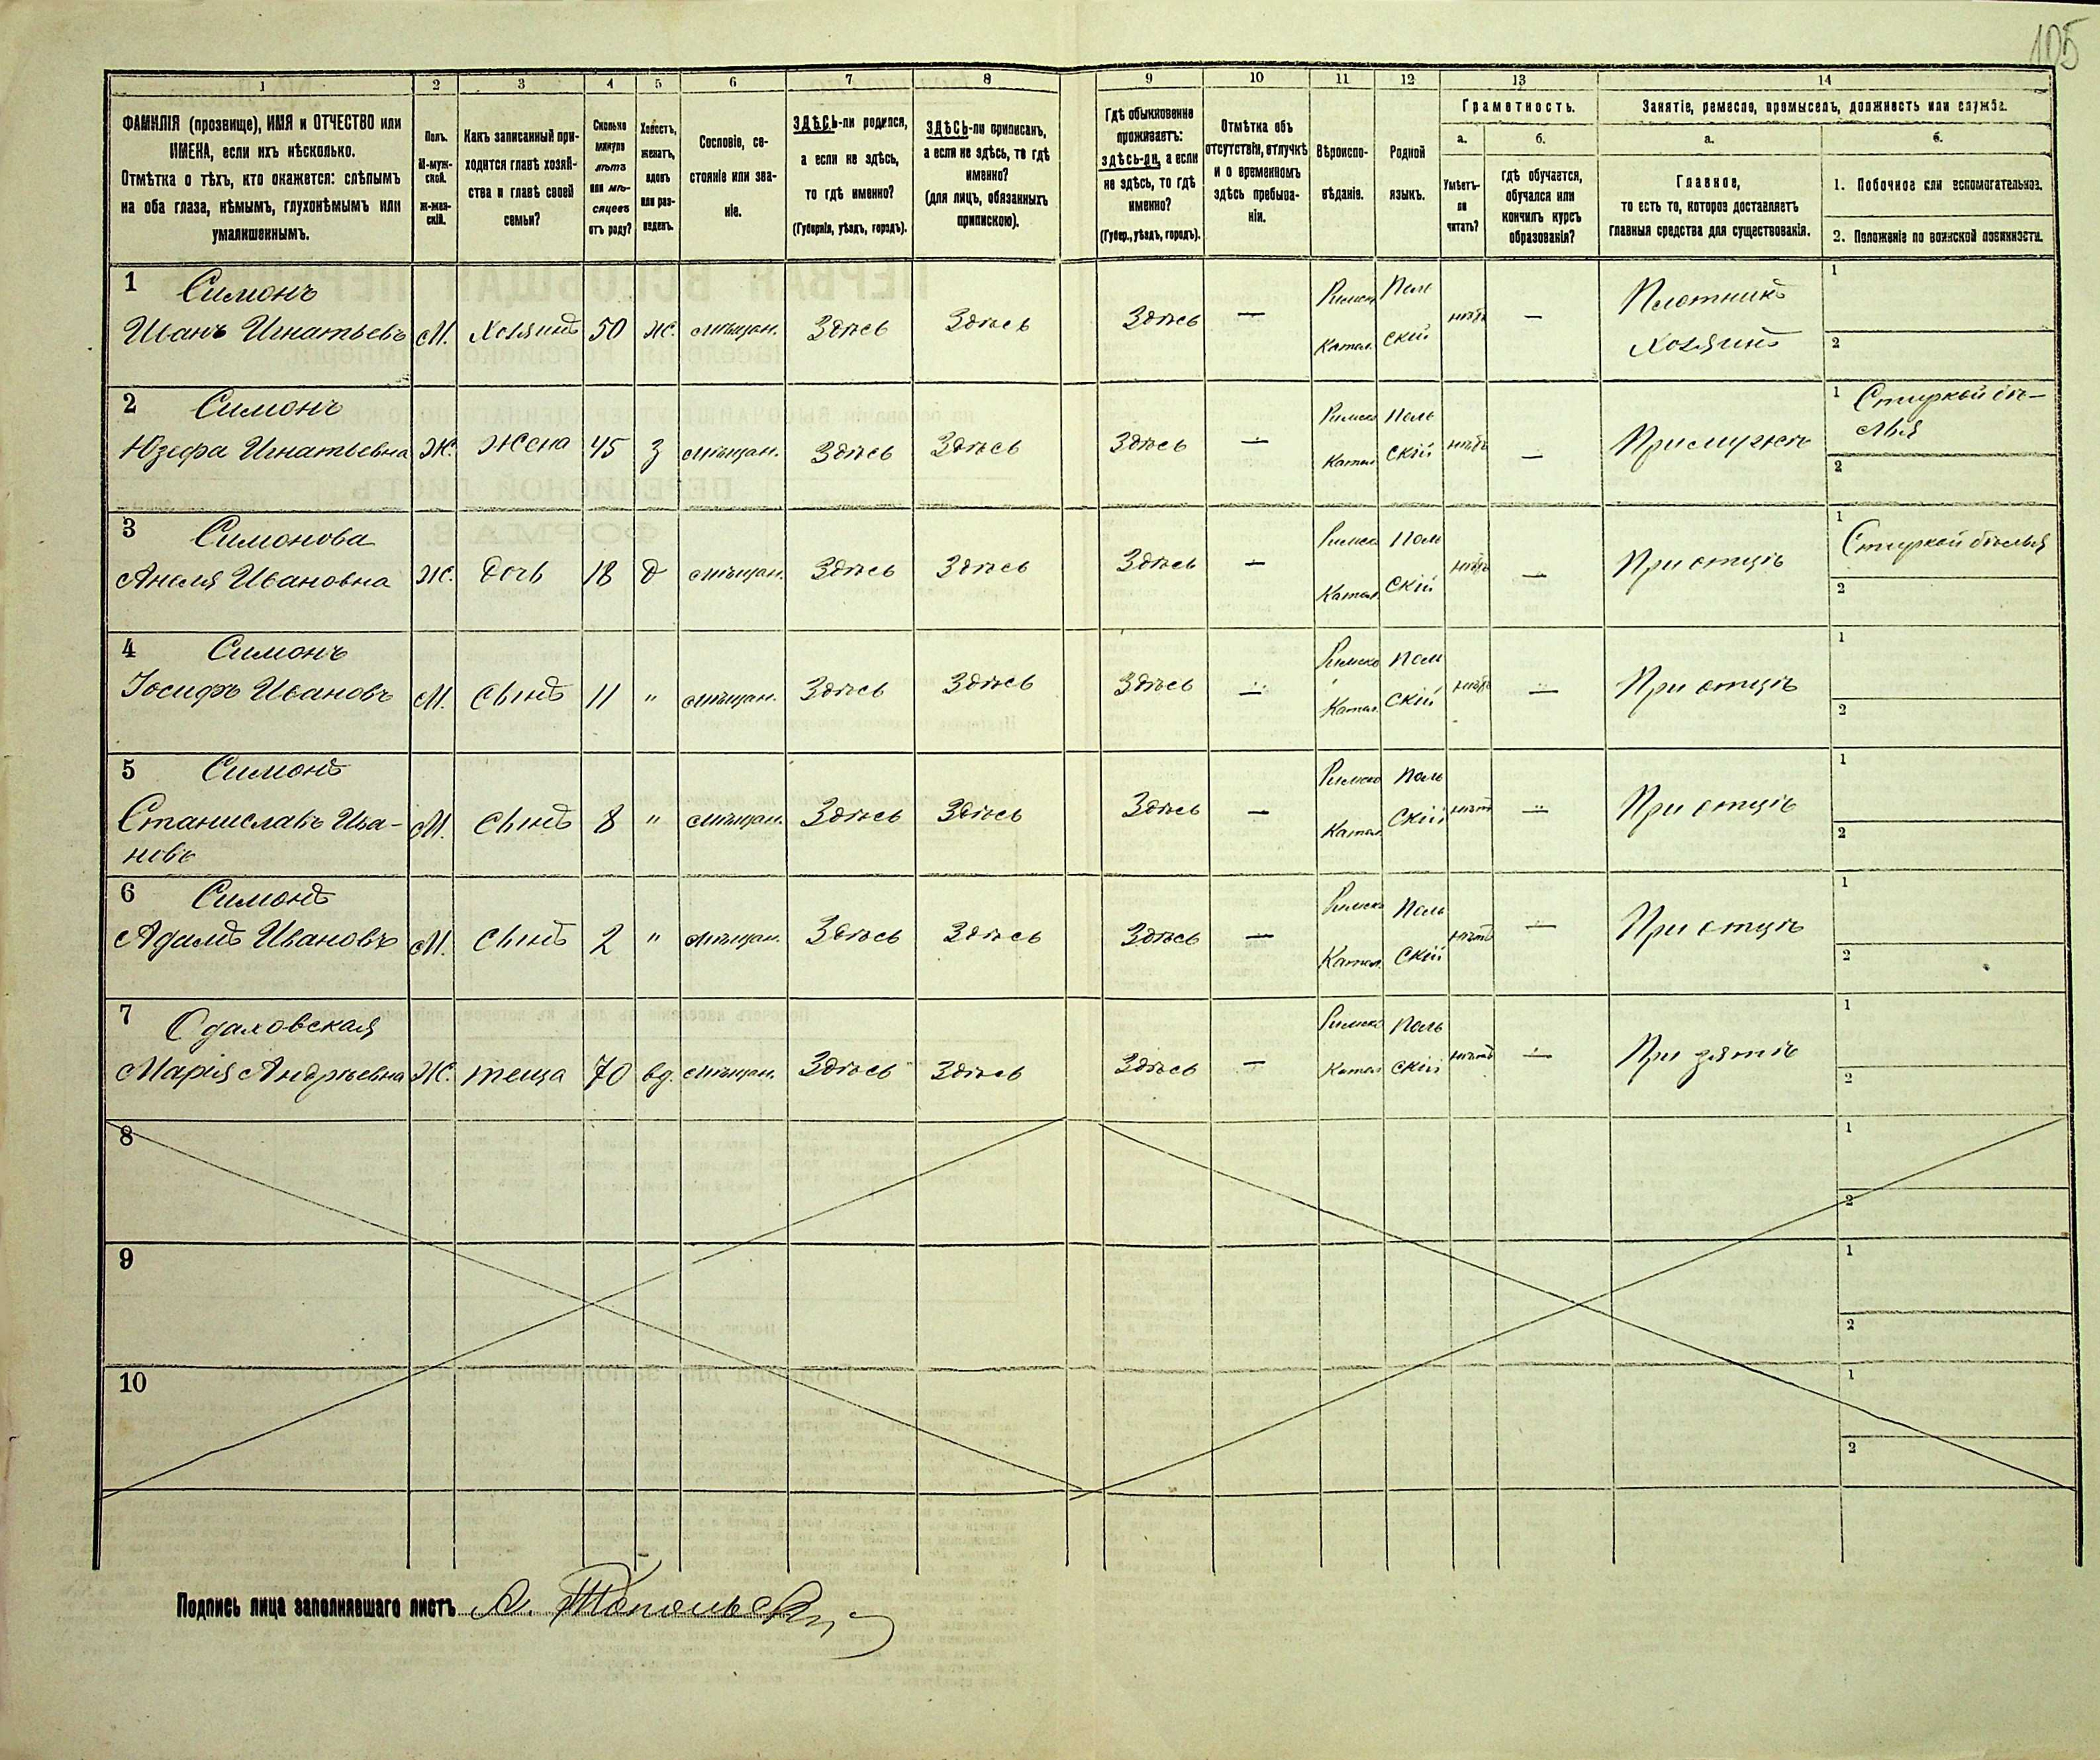 105
1 2 3 4 5 6 7 8 9 10 11 12 13 14
ФАМИЛІЯ (прозвище), ИМЯ и ОТЧЕСТВО или
ИМЕНА, если ихъ нѣсколько.
Отмѣтка о тѣхъ, кто окажется: слѣпымъ
на оба глаза, нѣмымъ, глухонѣмымъ или
умалишеннымъ.
Полъ.
М-муж-
ской.
Ж-жен-
скій.
Какъ записанный при-
ходится главѣ хозяй-
ства и главѣ своей
семьи?
Сколько
минуло
лѣтъ
или мѣ-
сяцевъ
отъ роду?
Холостъ,
женатъ,
вдовъ
или раз-
веденъ.
Сословіе, со-
стояніе или зва-
ніе.
ЗДѢСЬ-ли родился,
а если не здѣсь,
то гдѣ именно?
(Губернія, уѣздъ, городъ).
ЗДѢСЬ-ли приписанъ,
а если не здѣсь, то гдѣ
именно?
(для лицъ, обязанныхъ
припискою).
Гдѣ обыкновенно
проживаетъ:
здѣсь-ли, а если
не здѣсь, то гдѣ
именно?
(Губер., уѣздъ, городъ).
Отмѣтка объ
отсутствіи, отлучкѣ
и о временномъ
здѣсь пребыва-
ніи.
Вѣроиспо-
вѣданіе.
Родной
языкъ.
Грамотность.
а. б.
Умѣетъ-
ли
читать?
гдѣ обучается,
обучался или
кончилъ курсъ
образованія?
Занятіе, ремесло, промыселъ, должность или служба.
а. б.
Главное,
то есть то, которое доставляетъ
главныя средства для существованія.
1. Побочное или вспомогательное.
2. Положеніе по воинской повинности.
1 Симонъ Римск Пол Плотникъ 1
Иванъ Игнатьевъ М. Хозяинъ 50 ж. мѣщан. Здѣсь Здѣсь Здѣсь — Катол. скій нѣтъ — Хозяинъ 2
2 Симонъ Римско Поль 1 Стиркой бѣ-
Юзефа Игнатьевна Ж. Жена 45 З мѣщан. Здѣсь Здѣсь Здѣсь — Катол скій нѣтъ — При мужѣ лья 2
3 Симонова Римско Пол 1 Стиркой бѣлья
Анеля Ивановна Ж. Дочь 18 д мѣщан. Здѣсь Здѣсь Здѣсь — Катол. скій нѣтъ — При отцѣ 2
4 Симонъ Римско Пол 1
Іосифъ Ивановъ М. Сынъ 11 " мѣщан. Здѣсь Здѣсь Здѣсь — Катол. скій нѣтъ — При отцѣ 2
5 Симонъ Римско Поль 1
Станиславъ Ива- М. Сынъ 8 " мѣщан. Здѣсь Здѣсь Здѣсь — Катол. скій нѣтъ — При отцѣ 2
новъ
6 Симонъ Римско Поль 1
Адамъ Ивановъ М. Сынъ 2 " мѣщан. Здѣсь Здѣсь Здѣсь — Катол. скій нѣтъ — При отцѣ 2
7 Римско Поль 1
Марія Андреевна Ж. теща 70 вд. мѣщан. Здѣсь Здѣсь Здѣсь — Катол скій нѣтъ — При зятѣ 2
8 1
2
9 1
2
10 1
2
Подпись лица заполнявшаго листъ А. Топольскі